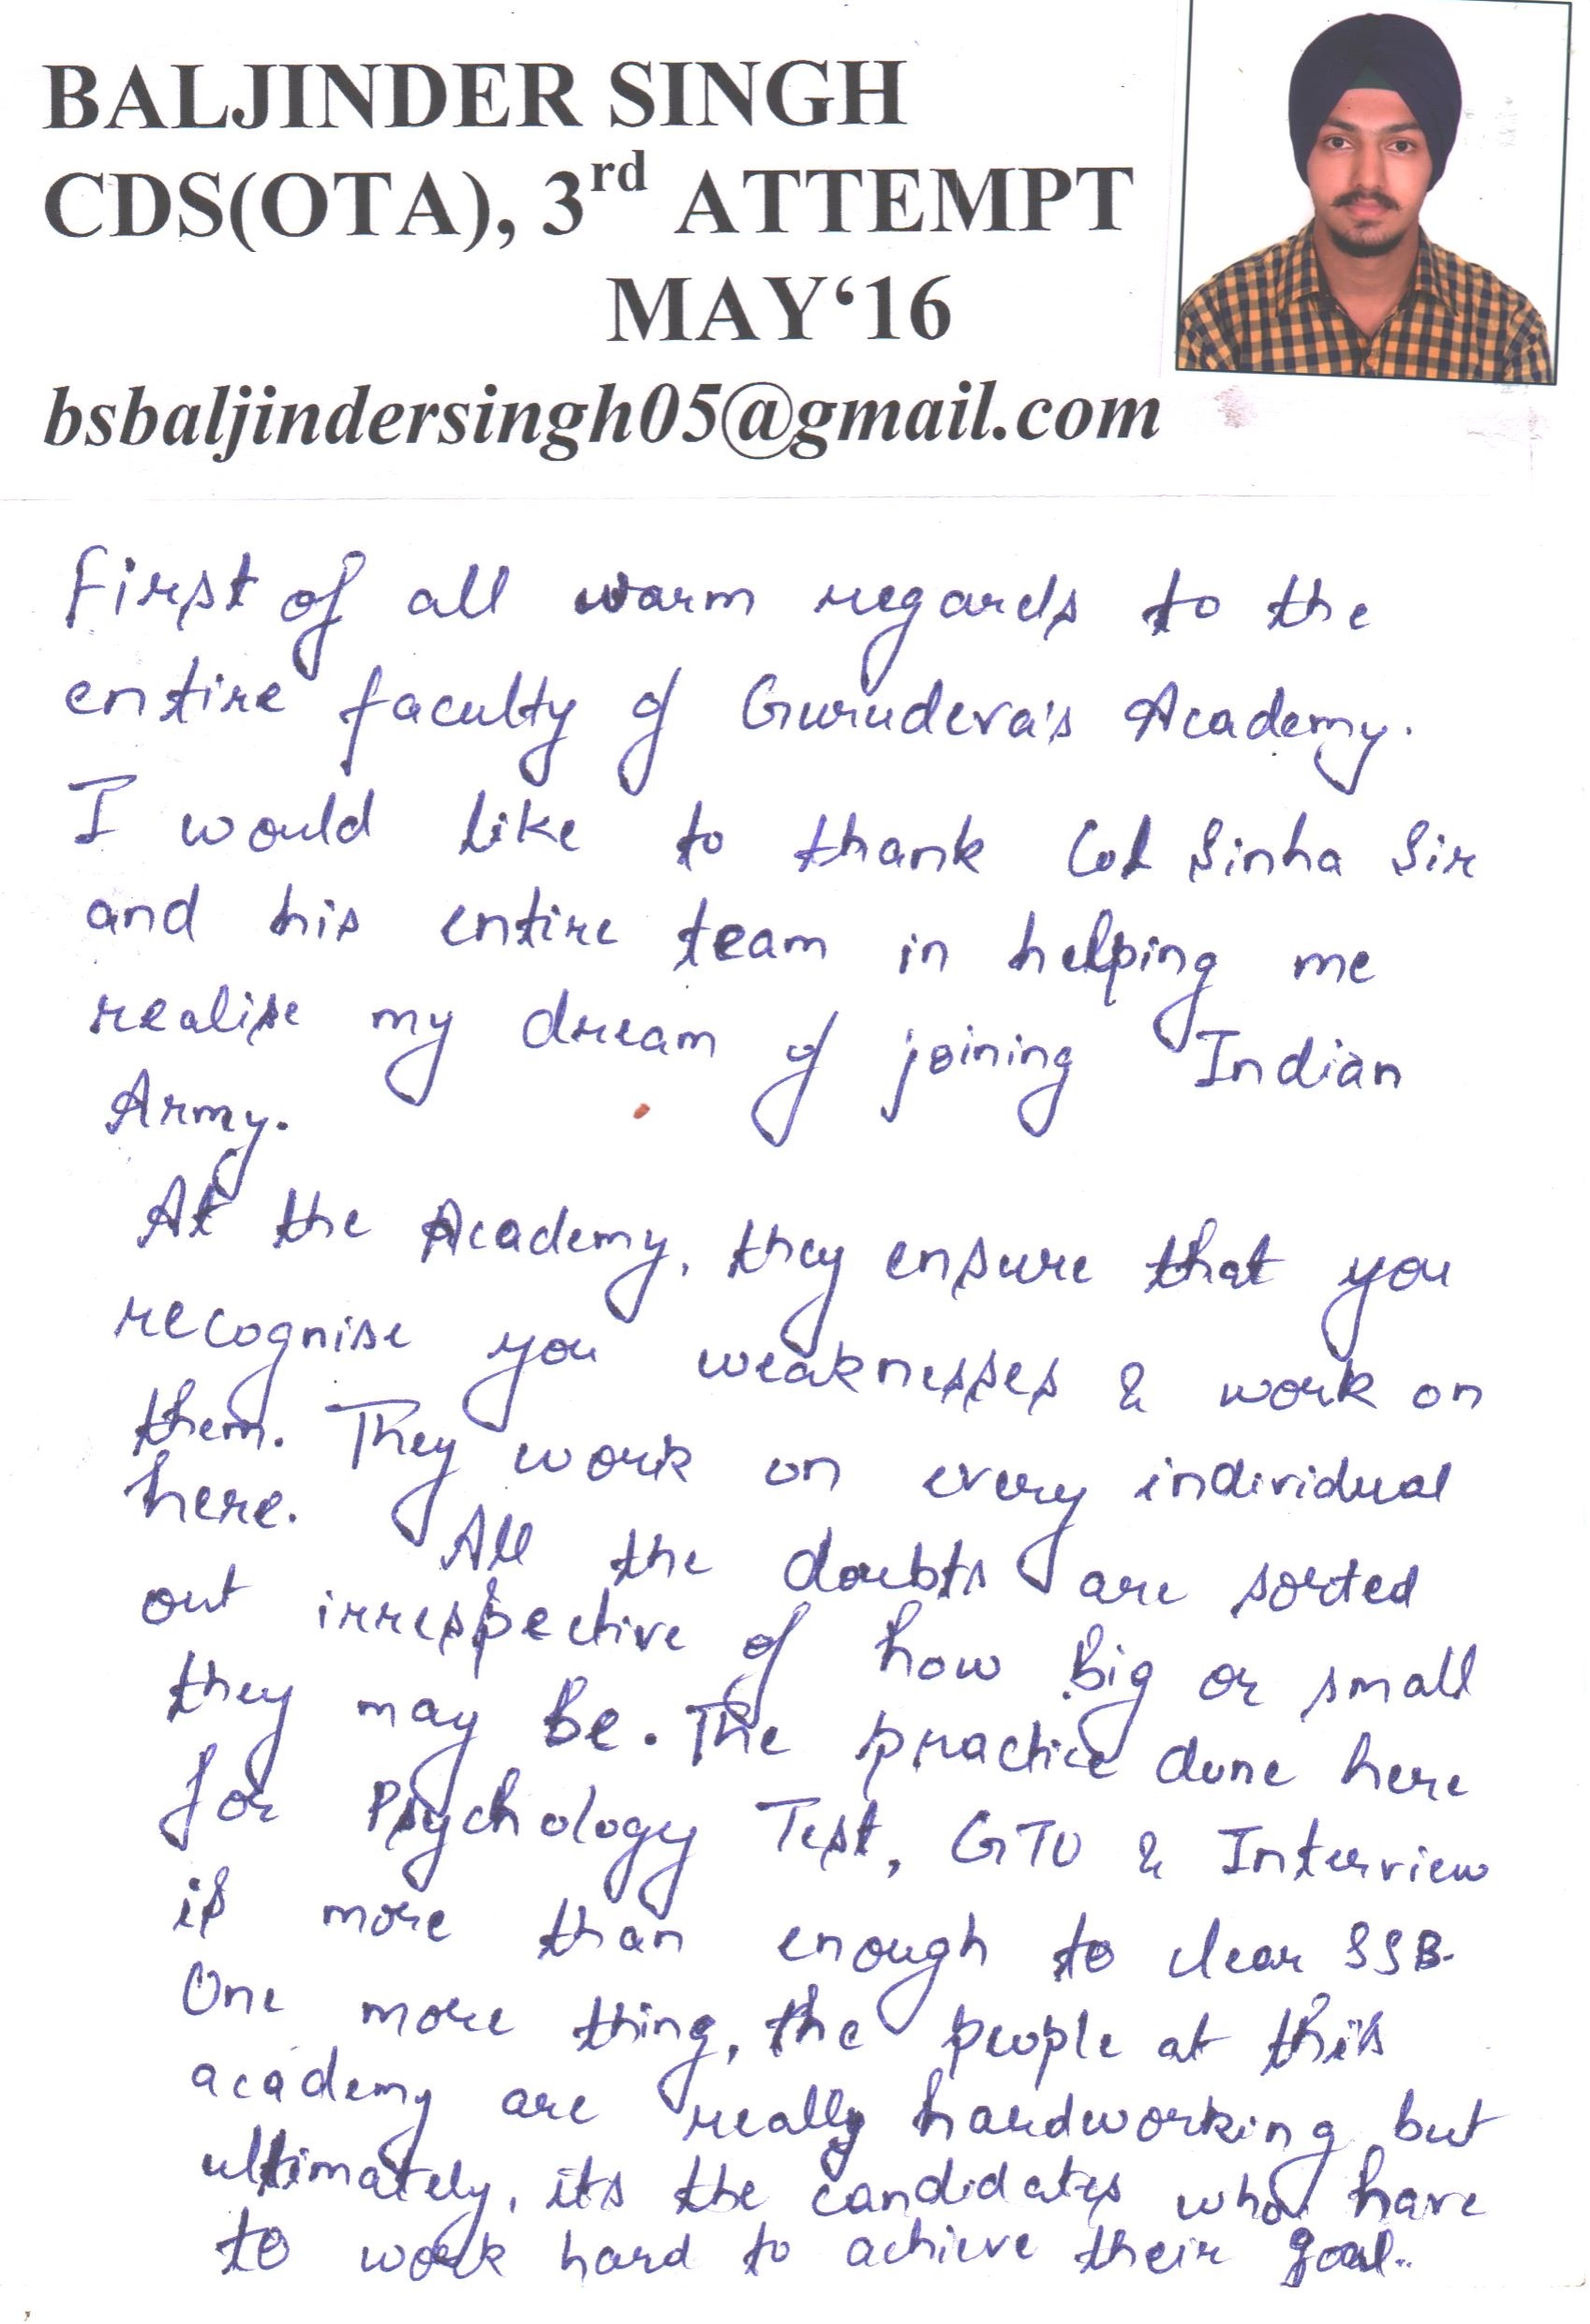 BALJINDER SINGH
CDS(OTA), 3rd ATTEMPT
MAY‘16
bsbaljindersingh05@gmail.com
First of all warm regards to the
entire faculty of Gurudeva's Academy.
I would like to thank Col Sinha Sir
and his entire team in helping me
realise my dream of joining Indian
Army.
At the Academy, they ensure that you
recognise you weaknesses & work on
them. They work on every individual
here. All the doubts are sorted
out irrespective of how big or small
they may be. The practice done here
for Psychology Test, GTO & Interview
is more than enough to clear SSB.
One more thing, the people at this
academy are really hardworking but
ultimately, its the candidates who have
to work hard to achieve their goal..